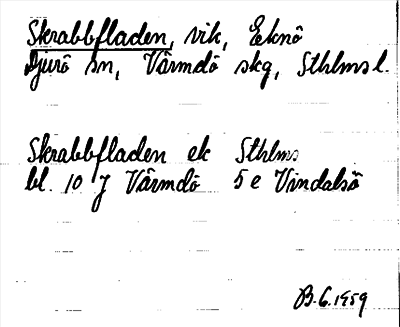 Skrabbfladen, vik, Eknö
Djurö sn, Värmdö skg, Sthlms l.
Skrabbfladen ek Sthlms
bl. 10 J Värmdö 5 e Vindalsö
B.G. 1959